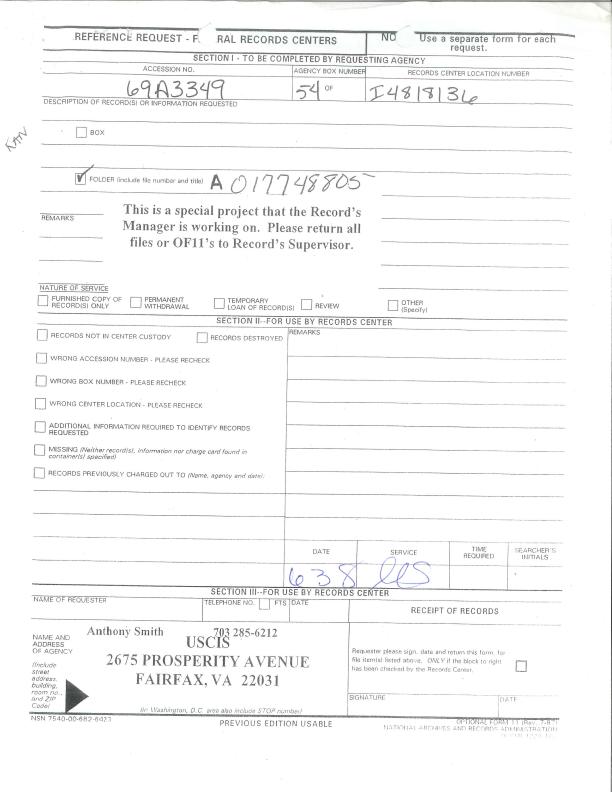 REFERENCE REQUEST - F RAL RECORDS CENTERS
NO Use a separate form for each request.
SECTION I - TO BE COMPLETED BY REQUESTING AGENCY
ACCESSION NO.
AGENCY BOX NUMBER
RECORDS CENTER LOCATION NUMBER
69A3349
54 OF
I4818136
DESCRIPTION OF RECORD(S) OR INFORMATION REQUESTED
BOX
FOLDER (include file number and title) A 017748805
REMARKS
This is a special project that the Record's
Manager is working on. Please return all
files or OF11's to Record's Supervisor.
NATURE OF SERVICE
FURNISHED COPY OF RECORD(S) ONLY
PERMANENT WITHDRAWAL
TEMPORARY LOAN OF RECORD(S)
REVIEW
OTHER (Specify)
SECTION II--FOR USE BY RECORDS CENTER
RECORDS NOT IN CENTER CUSTODY
RECORDS DESTROYED
REMARKS
WRONG ACCESSION NUMBER - PLEASE RECHECK
WRONG BOX NUMBER - PLEASE RECHECK
WRONG CENTER LOCATION - PLEASE RECHECK
ADDITIONAL INFORMATION REQUIRED TO IDENTIFY RECORDS
REQUESTED
MISSING (Neither record(s), information nor charge card found in
container(s) specified)
RECORDS PREVIOUSLY CHARGED OUT TO (Name, agency and date):
DATE
SERVICE
TIME REQUIRED
SEARCHER'S INITIALS
638
SECTION III--FOR USE BY RECORDS CENTER
NAME OF REQUESTER
TELEPHONE NO.
FTS
DATE
RECEIPT OF RECORDS
Anthony Smith 703 285-6212
NAME AND
ADDRESS
OF AGENCY
(Include
street
address,
building,
room no.,
and ZIP
Code)
USCIS
2675 PROSPERITY AVENUE
FAIRFAX, VA 22031
(In Washington, D.C. area also include STOP number)
Requester please sign, date and return this form, for
file item(s) listed above, ONLY if the block to right
has been checked by the Records Center.
SIGNATURE
DATE
NSN 7540-00-682-6423
PREVIOUS EDITION USABLE
OPTIONAL FORM 11
NATIONAL ARCHIVES AND RECORDS ADMINISTRATION